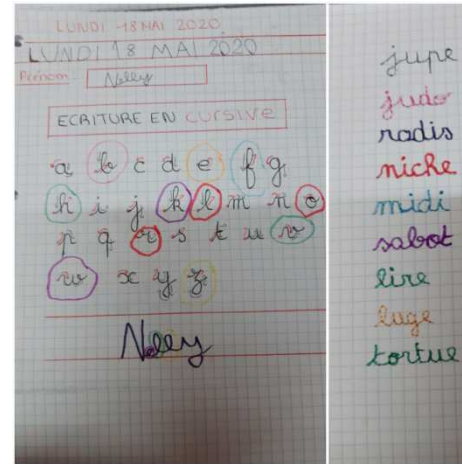 LUNDI 18 MAI 2020
LUNDI 18 MAI 2020
Prénom : Nelly
ECRITURE EN CURSIVE
a b c d e f g
h i j k l m n o
p q r s t u v
w x y z
Nelly
jupe
judo
radis
niche
midi
sabot
lire
luge
tortue